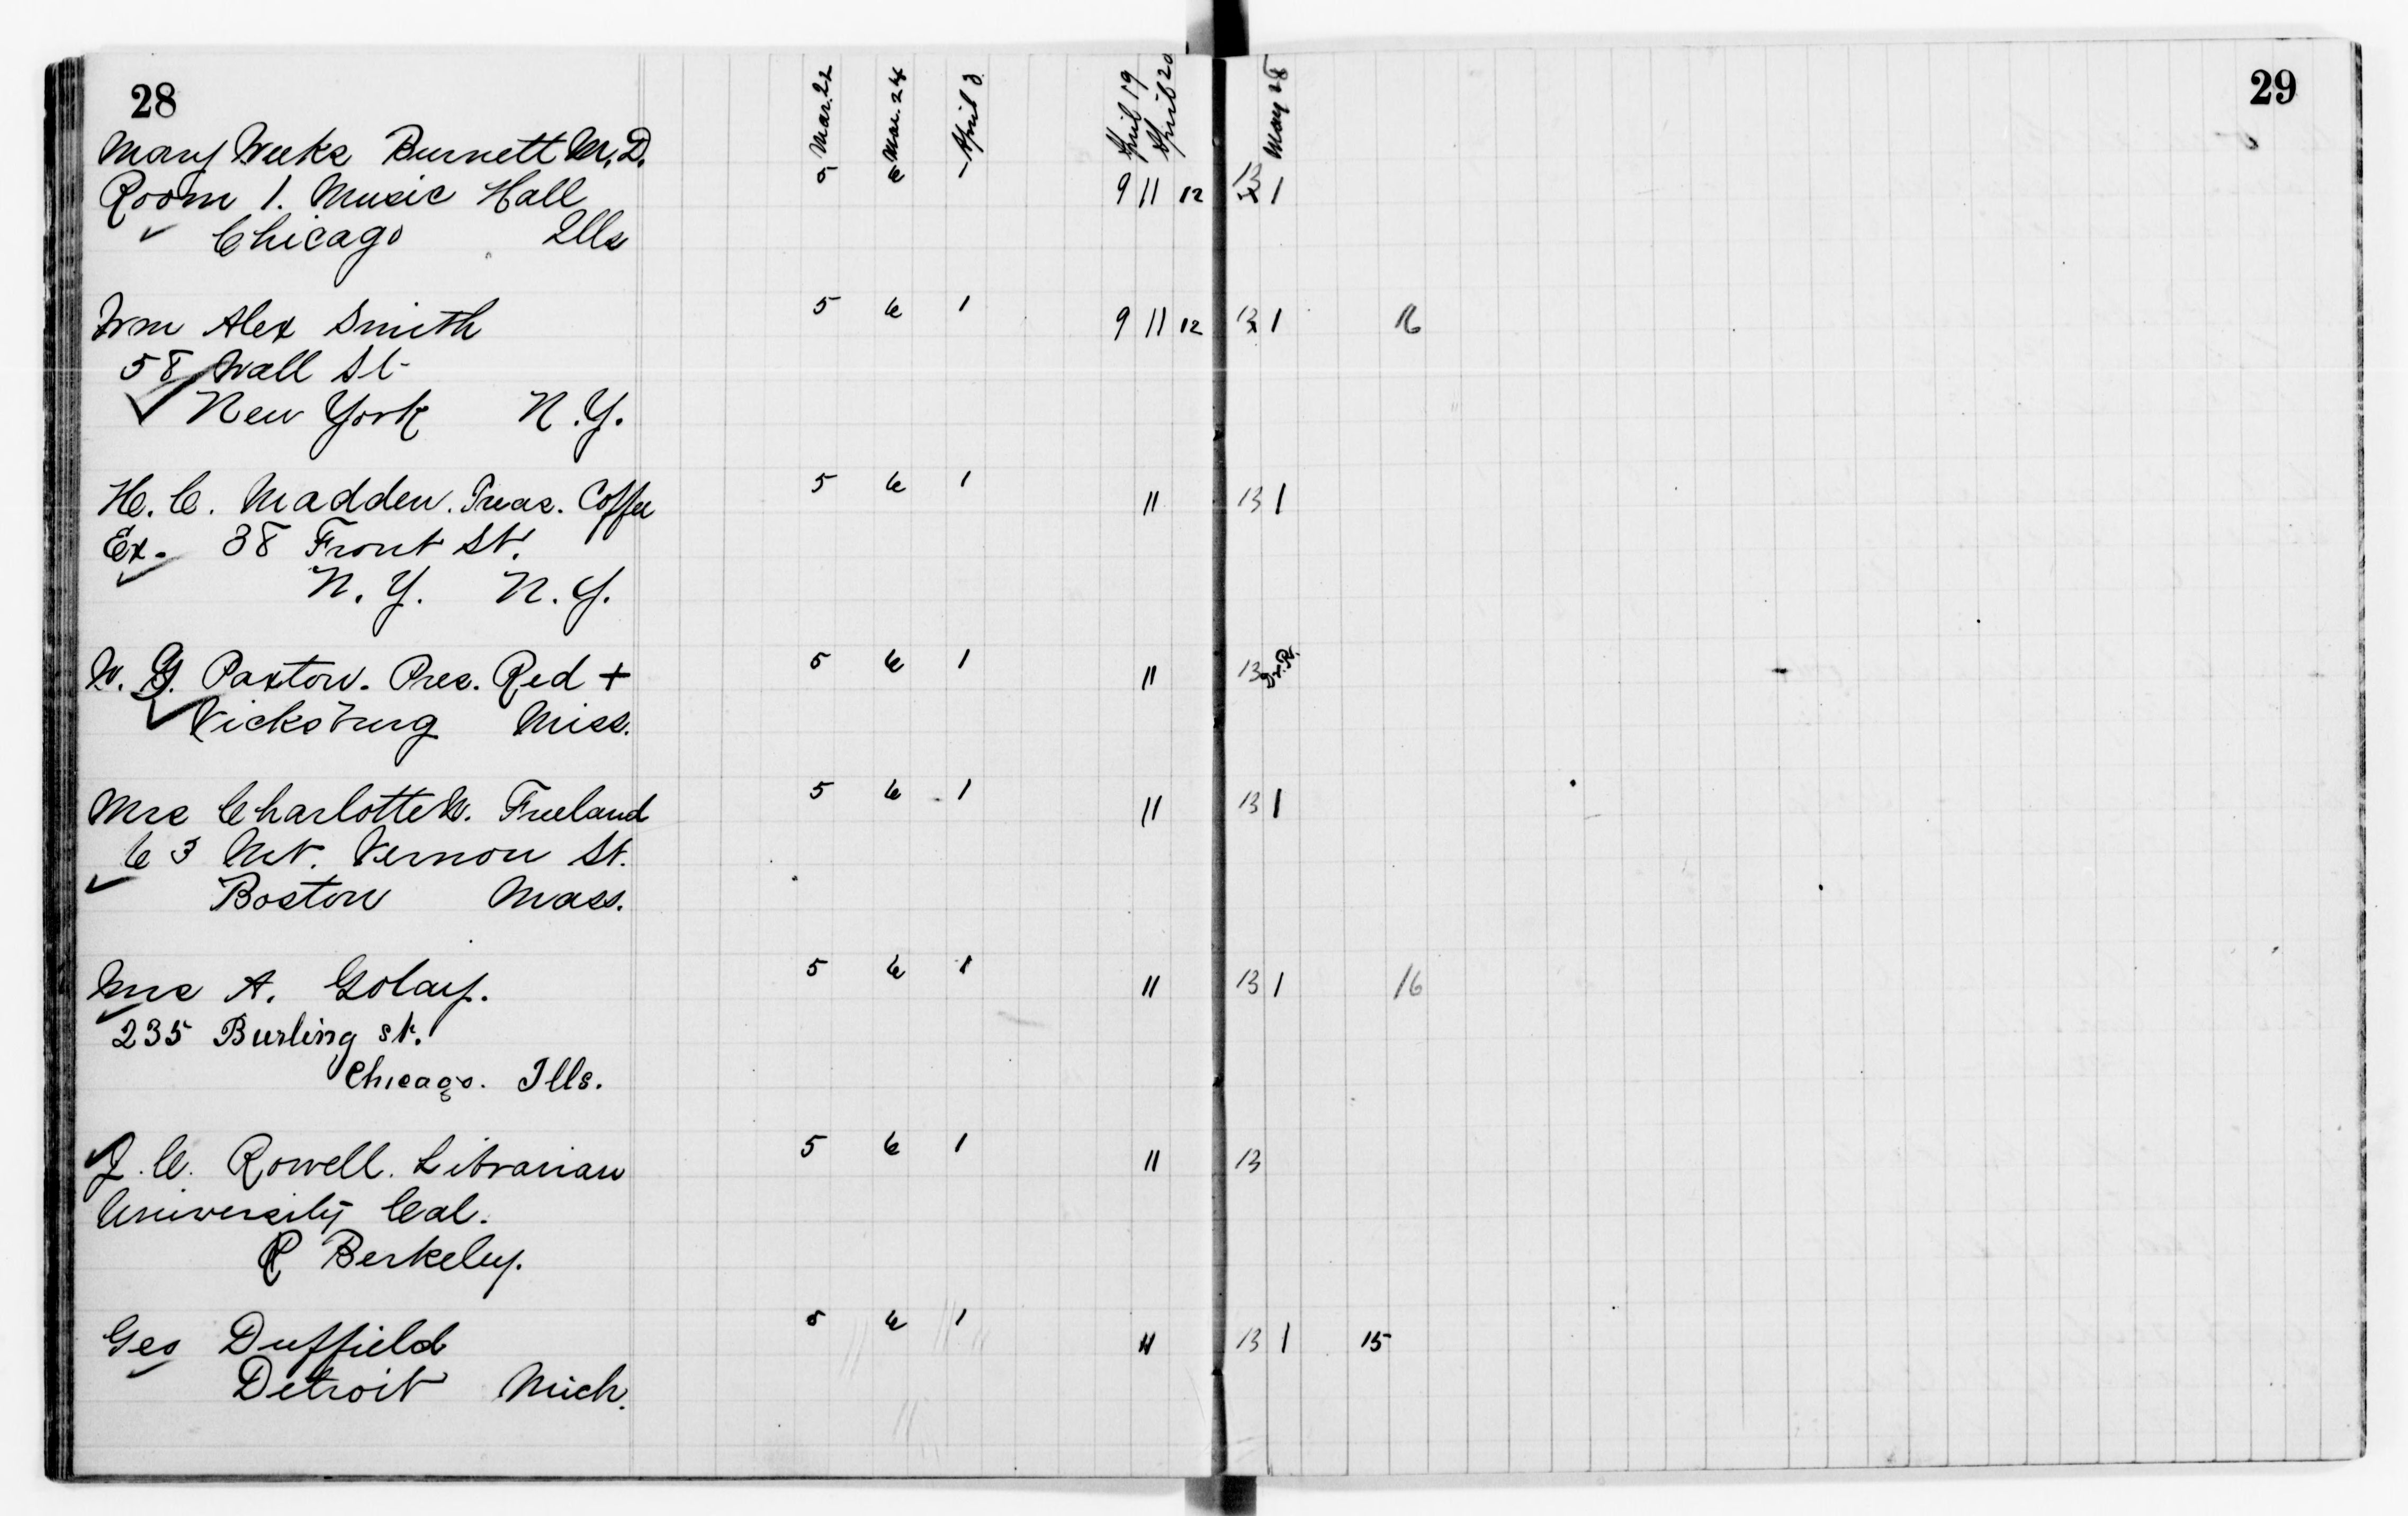 28
Mar. 22
Mar. 24
April 3
April 19
April 20
May 28
29
Mary Weeks Burnett M.D.
5 6 1
Room 1. Music Hall
9 11 12 13 1
Chicago Ills
Wm Alex Smith
5 6 1 9 11 12 13 1 16
58 Wall St-
New York N.Y.
H. C. Madden. Treas. Coffee
5 6 1 11 13 1
Ex. 38 Front St.
N. Y. N. Y.
W. G. Paxton. Pres. Red +
5 6 1 11 13 Dr. R.
Vicksburg Miss.
Mrs Charlotte W. Freeland
5 6 1 11 13 1
63 Mt. Vernon St.
Boston Mass.
Mrs A. Golay.
5 6 1 11 13 1 16
235 Burling st.
Chicago. Ills.
J. C. Rowell. Librarian
5 6 1 11 13
University Cal.
Berkeley.
Geo Duffield
5 6 1 11 13 1 15
Detroit Mich.